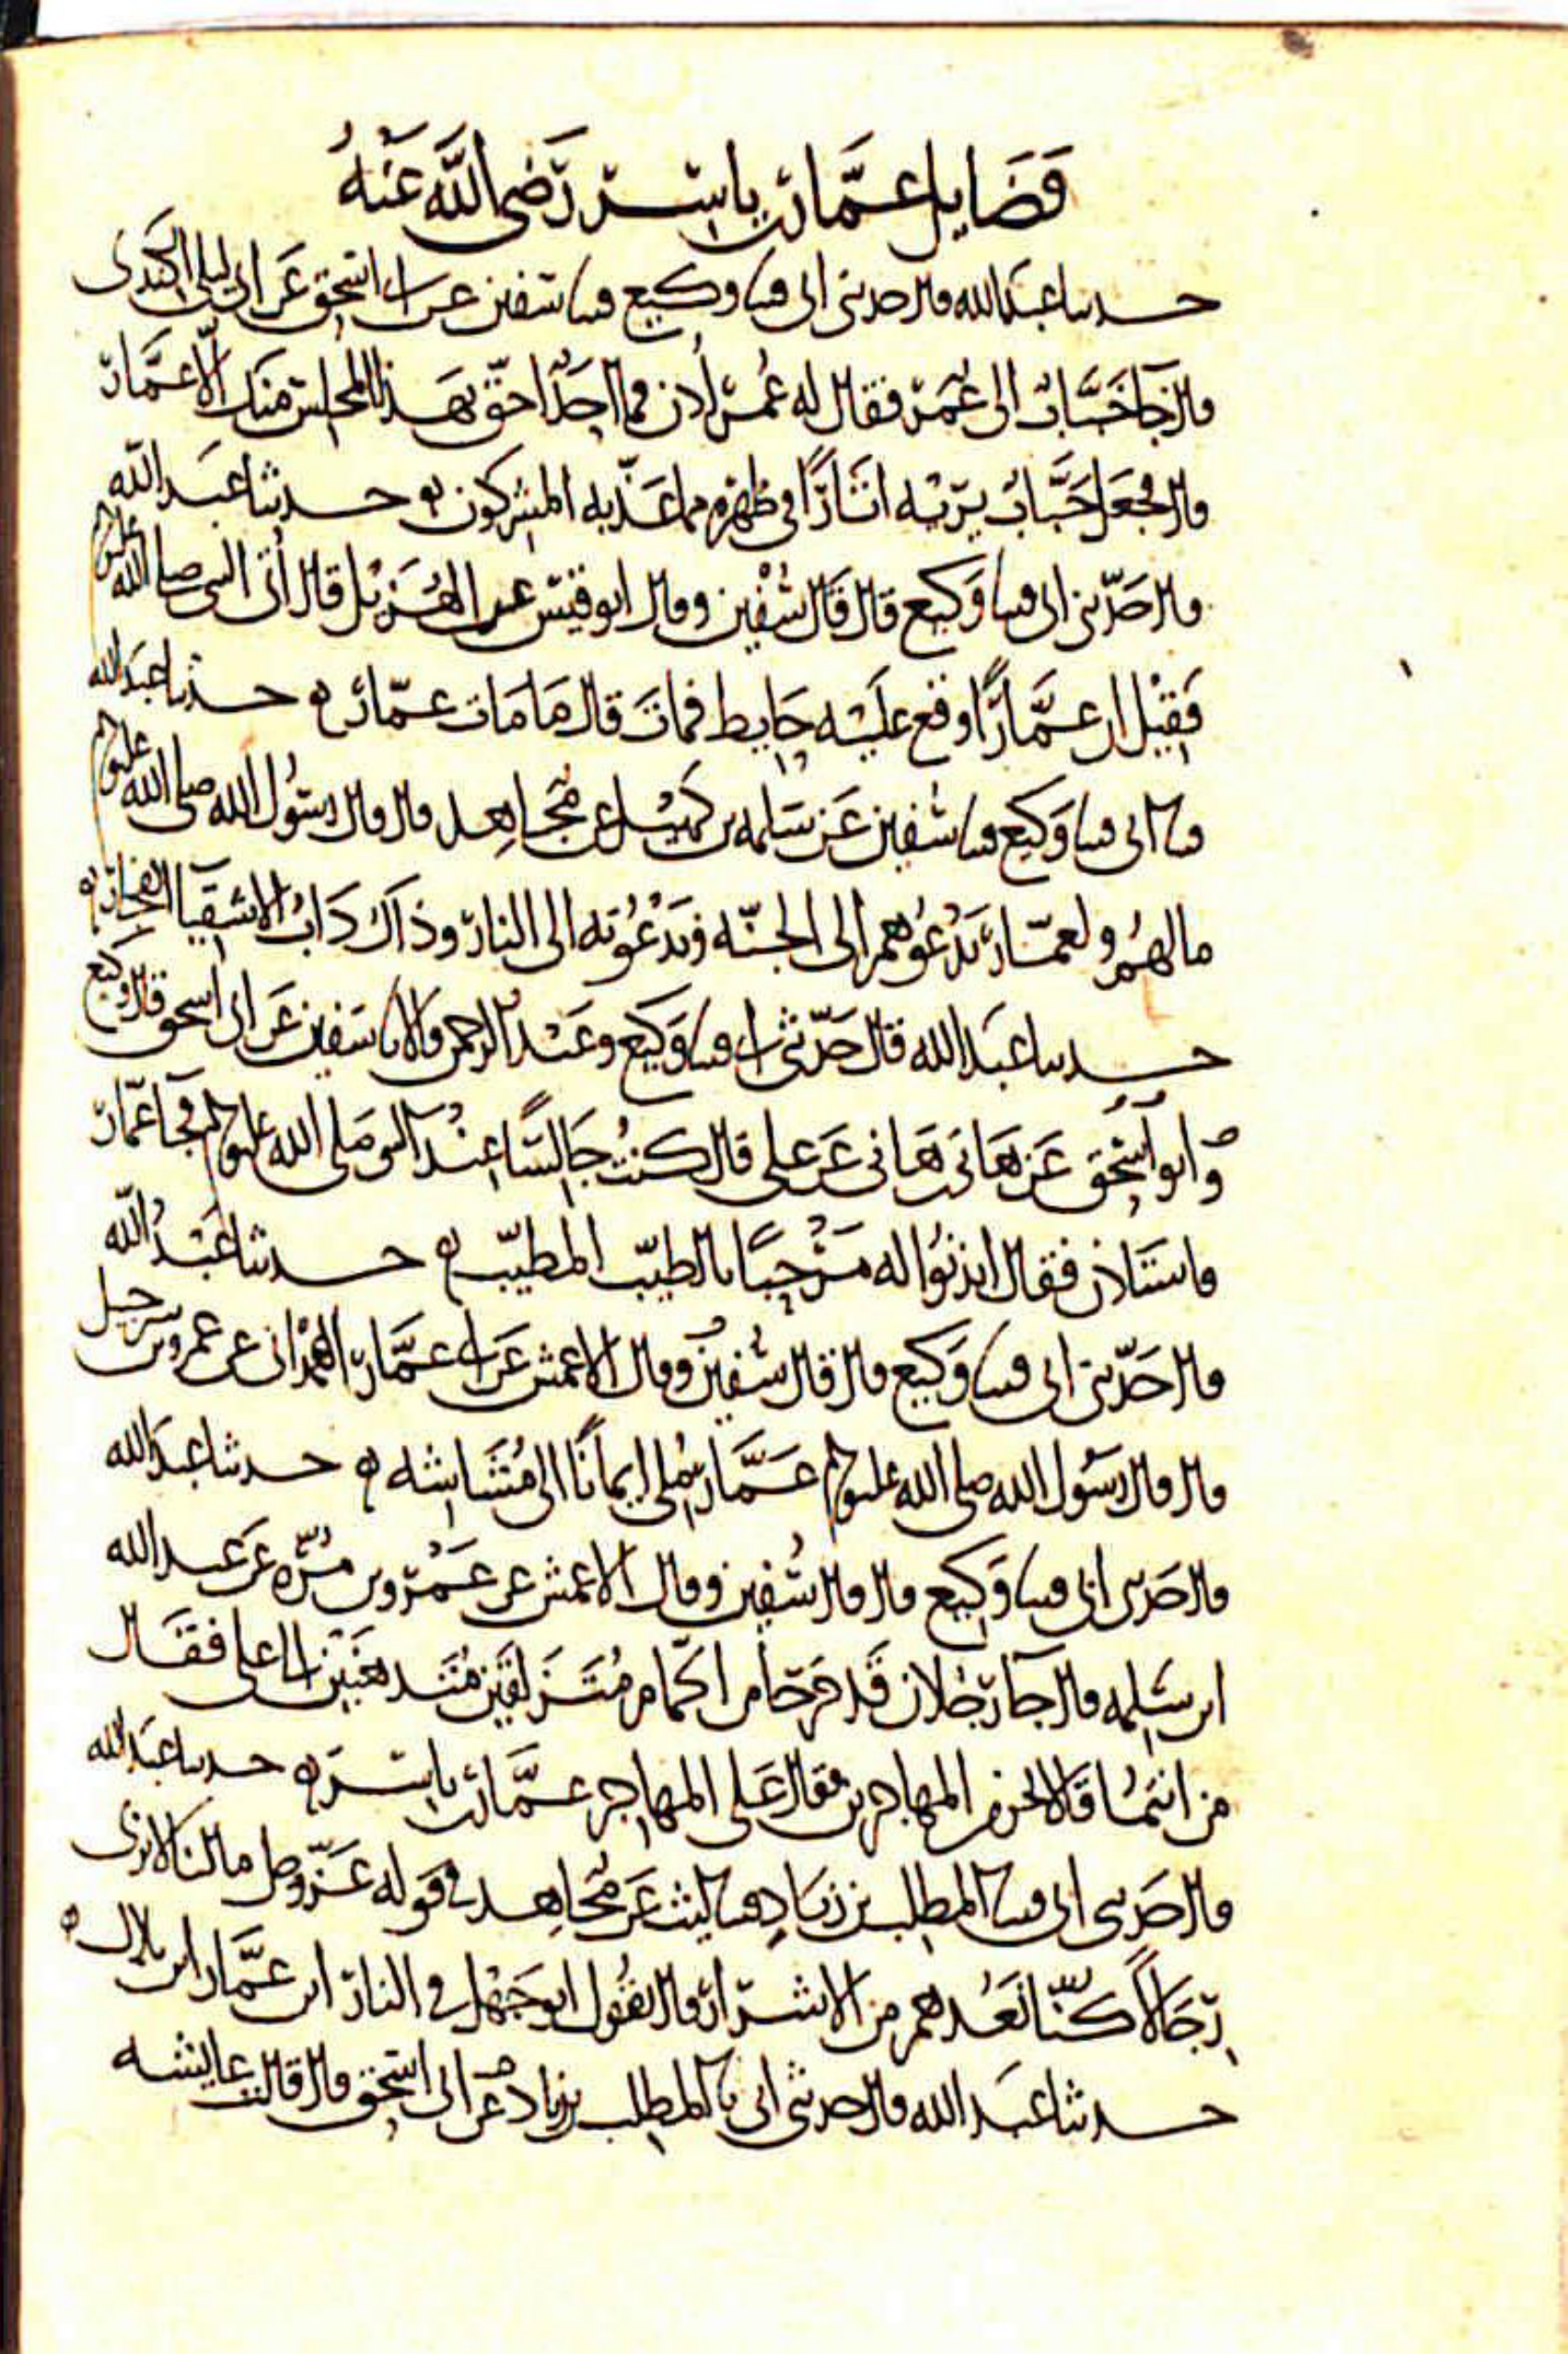 فضايل عمار بن ياسر رضي الله عنه
حدثنا عبد الله قال حدثني ابي قثنا وكيع قثنا سفين عن ابي اسحق عن ابي ليلى الكندي
قال جا خباب الى عمر فقال له عمر ادن فما احد احق بهذا المجلس منك الا عمار
قال فجعل خباب يريه اثارا في ظهره مما عذبه المشركون حدثنا عبد الله
قال حدثني ابي قثنا وكيع قال قال سفين وقال ابو قيس عن الهزيل قال اتى النبي صلى الله عليه وسلم
فقيل ان عمارا وقع عليه حايط فمات قال ما مات عمار حدثنا عبد الله
قثنا ابي قثنا وكيع قثنا سفين عن سلمه بن كهيل عن مجاهد قال قال رسول الله صلى الله عليه وسلم
ما لهم ولعمار يدعوهم الى الجنه ويدعونه الى النار وذاك داب الاشقيا الفجار
حدثنا عبد الله قال حدثني ابي قثنا وكيع وعبد الرحمن قالا نا سفين عن ابي اسحق قال وكيع
وابو اسحق عن هاني بن هاني عن علي قال كنت جالسا عند النبي صلى الله عليه وسلم فجا عمار
فاستاذن فقال ايذنوا له مرحبا بالطيب المطيب حدثنا عبد الله
قال حدثني ابي قثنا وكيع قال قال سفين وقال الاعمش عن ابي عمار الهمداني عن عمرو بن شرحبيل
قال قال رسول الله صلى الله عليه وسلم عمار ملي ايمانا الى مشاشه حدثنا عبد الله
قال حدثني ابي قثنا وكيع قال قال سفين وقال الاعمش عن عمرو بن مره عن عبد الله
ابن سلمه قال جا رجلان قد خرجا من الحمام متزلقين متدهنين الى علي فقال
من انتما قالا نحن من المهاجرين فقال علي المهاجر عمار بن ياسر حدثنا عبد الله
قال حدثني ابي قثنا المطلب بن زياد قثنا ليث عن مجاهد في قوله عز وجل ما لنا لا نرى
رجالا كنا نعدهم من الاشرار قال يقول ابو جهل في النار اين عمار اين بلال
حدثنا عبد الله قال حدثني ابي نا المطلب بن زياد عن ابي اسحق قال قالت عايشه